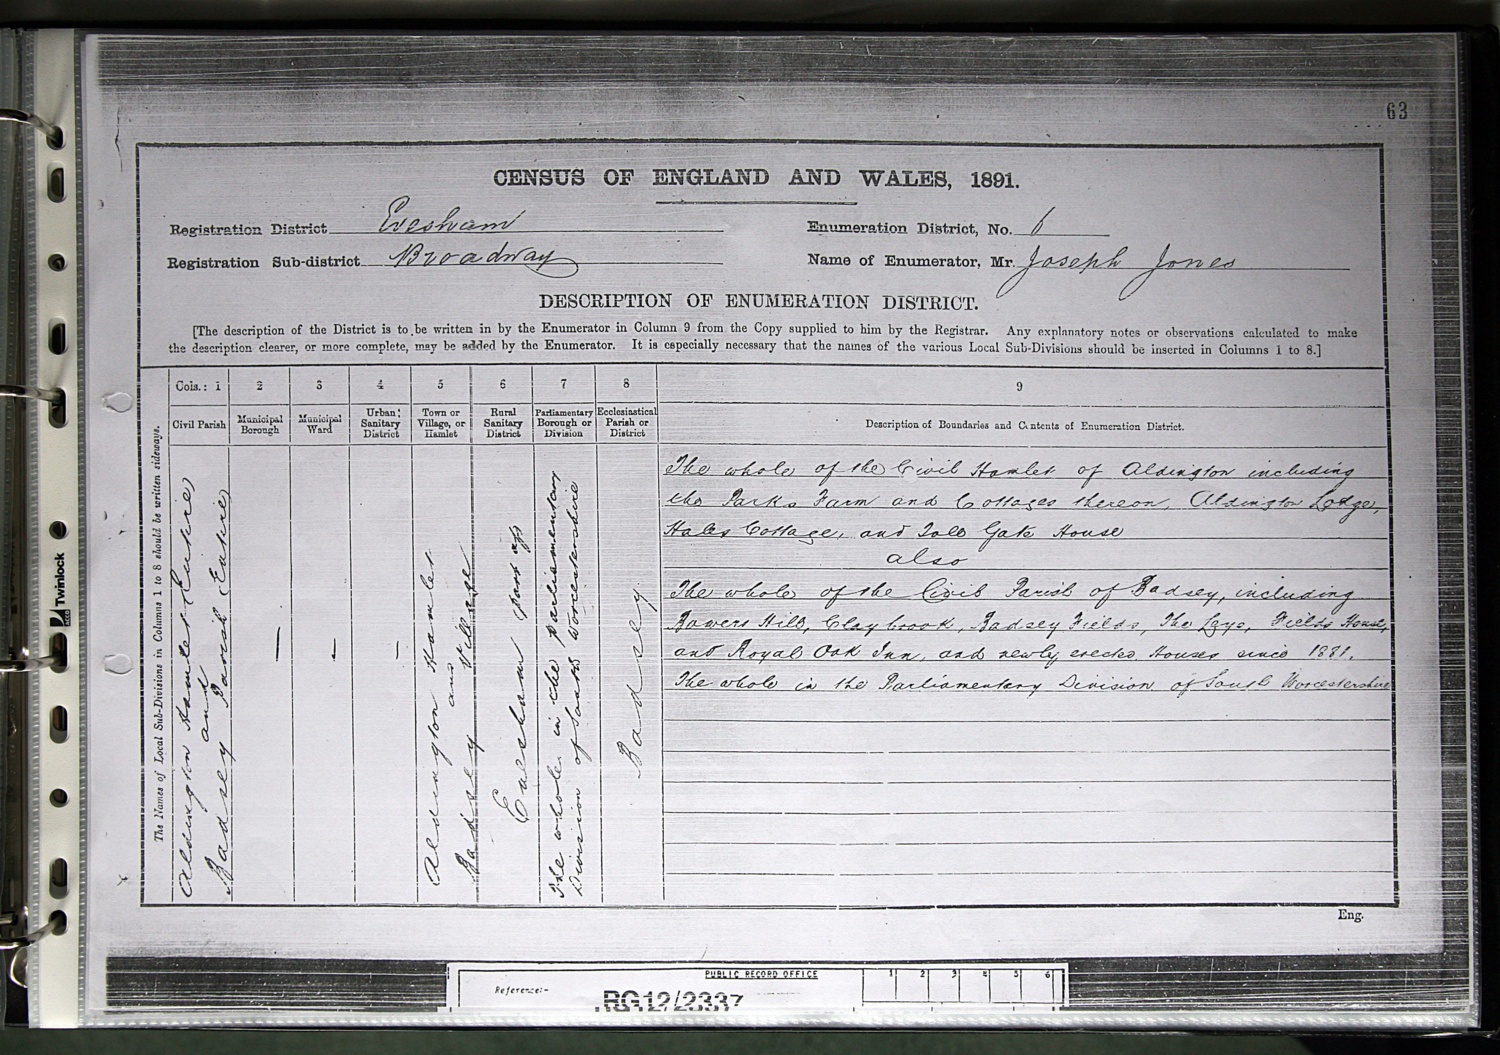 63
CENSUS OF ENGLAND AND WALES, 1891.
Registration District Evesham
Enumeration District, No. 6
Registration Sub-district Broadway
Name of Enumerator, Mr. Joseph Jones
DESCRIPTION OF ENUMERATION DISTRICT.
[The description of the District is to be written in by the Enumerator in Column 9 from the Copy supplied to him by the Registrar. Any explanatory notes or observations calculated to make
the description clearer, or more complete, may be added by the Enumerator. It is especially necessary that the names of the various Local Sub-Divisions should be inserted in Columns 1 to 8.]
The Names of Local Sub-Divisions in Columns 1 to 8 should be written sideways.
Cols.: 1 2 3 4 5 6 7 8 9
Civil Parish
Municipal Borough
Municipal Ward
Urban Sanitary District
Town or Village, or Hamlet
Rural Sanitary District
Parliamentary Borough or Division
Ecclesiastical Parish or District
Description of Boundaries and Contents of Enumeration District.
Aldington Hamlet Entire
and
Badsey Parish Entire
—
-
—
Aldington Hamlet
and
Badsey Village
Evesham part of
The whole in the Parliamentary
Division of South Worcestershire
Badsey
The whole of the Civil Hamlet of Aldington including
the Parks Farm and Cottages thereon, Aldington Lodge,
Hales Cottage, and Toll Gate House
also
The whole of the Civil Parish of Badsey, including
Bowers Hill, Claybrook, Badsey Fields, The Leys, Fields House,
and Royal Oak Inn, and newly erected Houses since 1881.
The whole in the Parliamentary Division of South Worcestershire
Eng.
Twinlock
PUBLIC RECORD OFFICE
1 2 3 4 5 6
Reference:-
RG12/2337